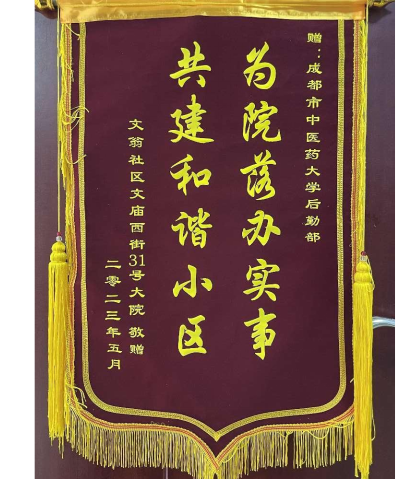 赠：成都市中医药大学后勤部
为院落办实事
共建和谐小区
文翁社区文庙西街31号大院 敬赠
二零二三年五月